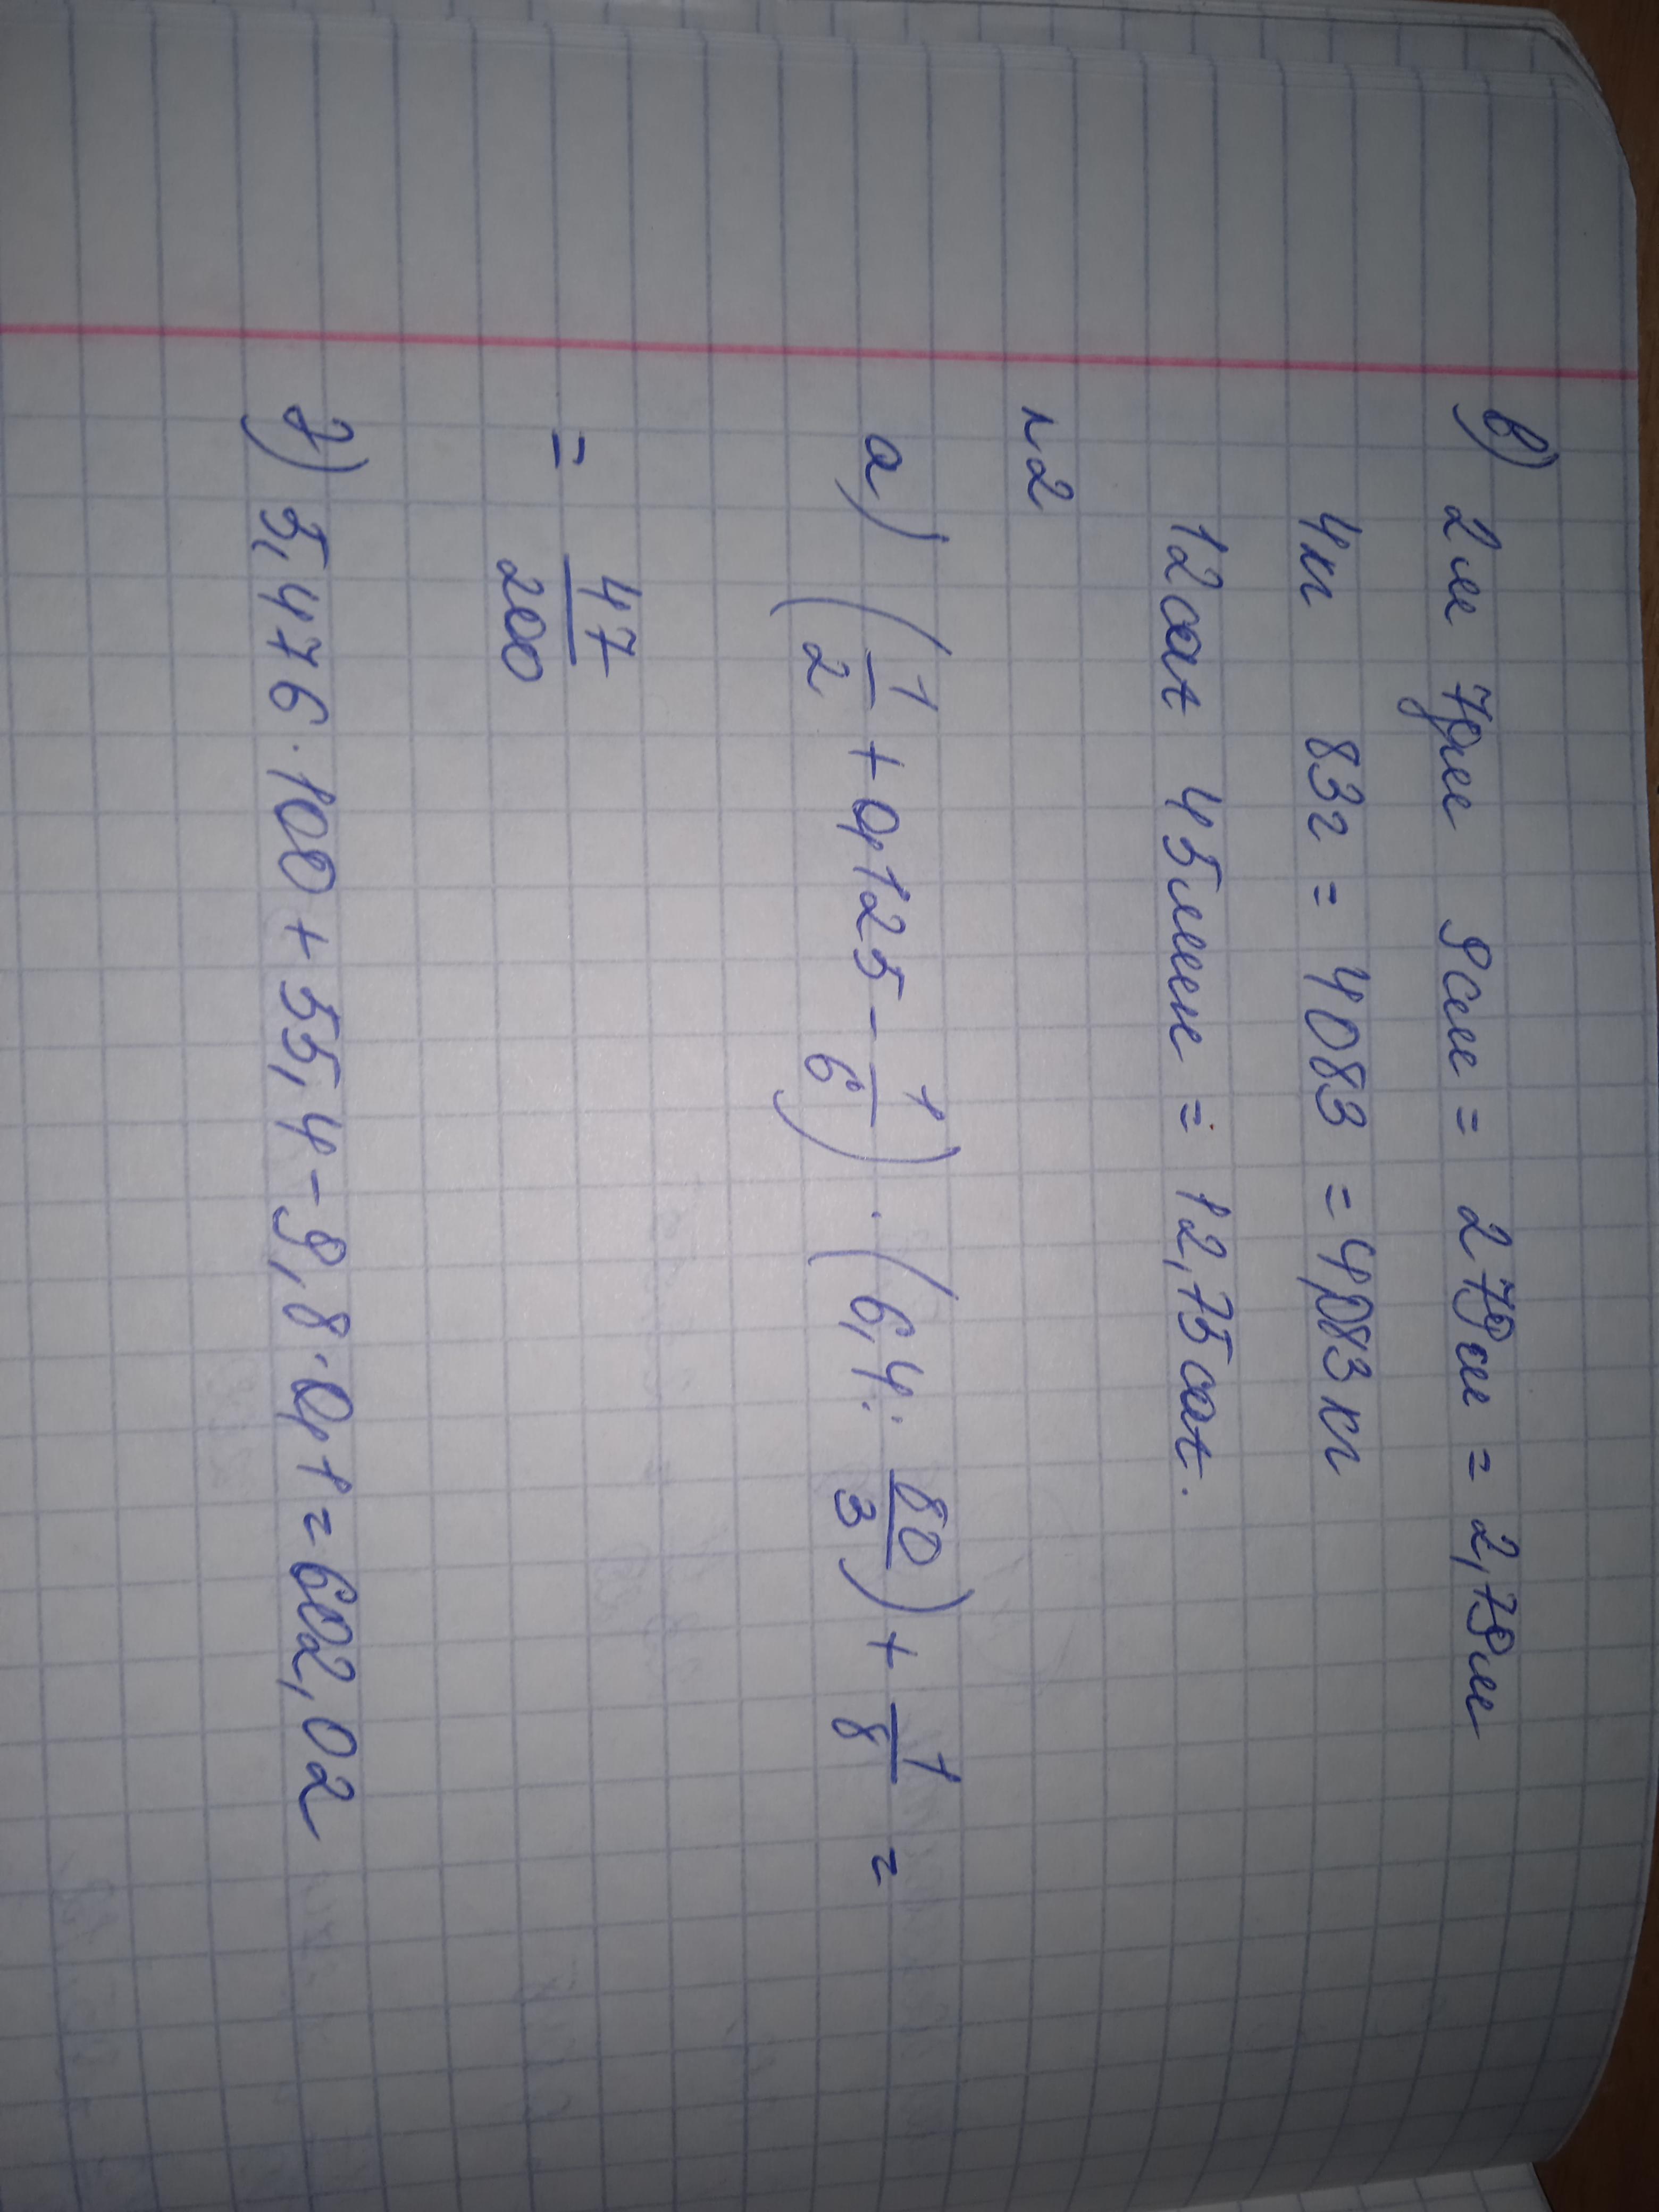 в) 2м 7дм 9см = 279см = 2,79м
4кг 83г = 4083 = 4,083кг
12сағ 45мин = 12,75сағ.
№2
а) (1/2 + 0,125 - 1/6) · (6,4 : 80/3) + 1/8 =
= 47/200
2) 5,476 · 100 + 55,4 - 9,8 · 0,1 = 602,02